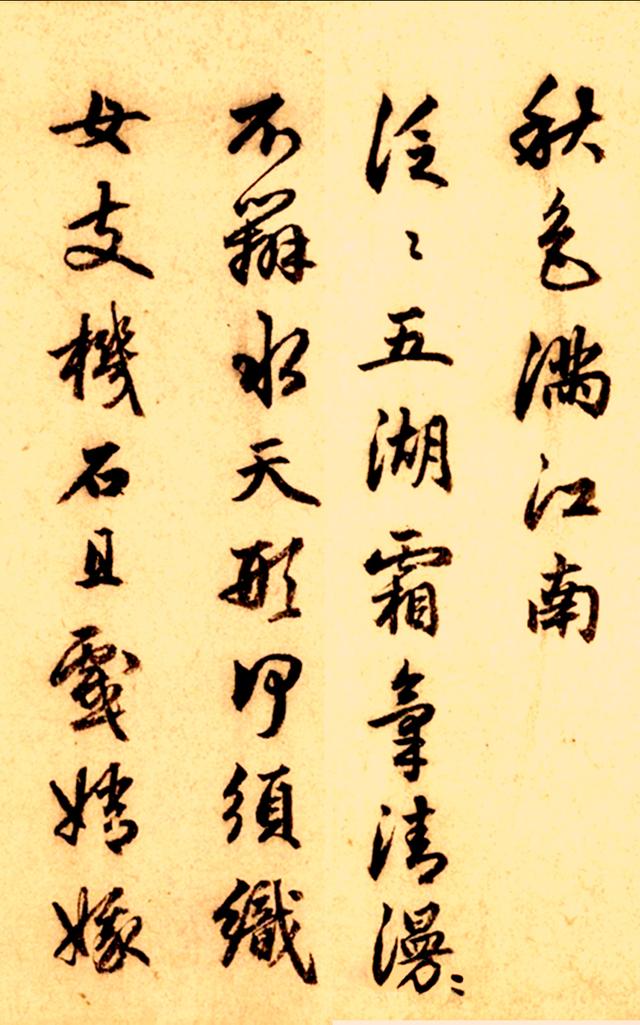 秋色滿江南
泛〻五湖霜氣清漫〻
不辨水天形何須織
女支機石且戲嫦娥